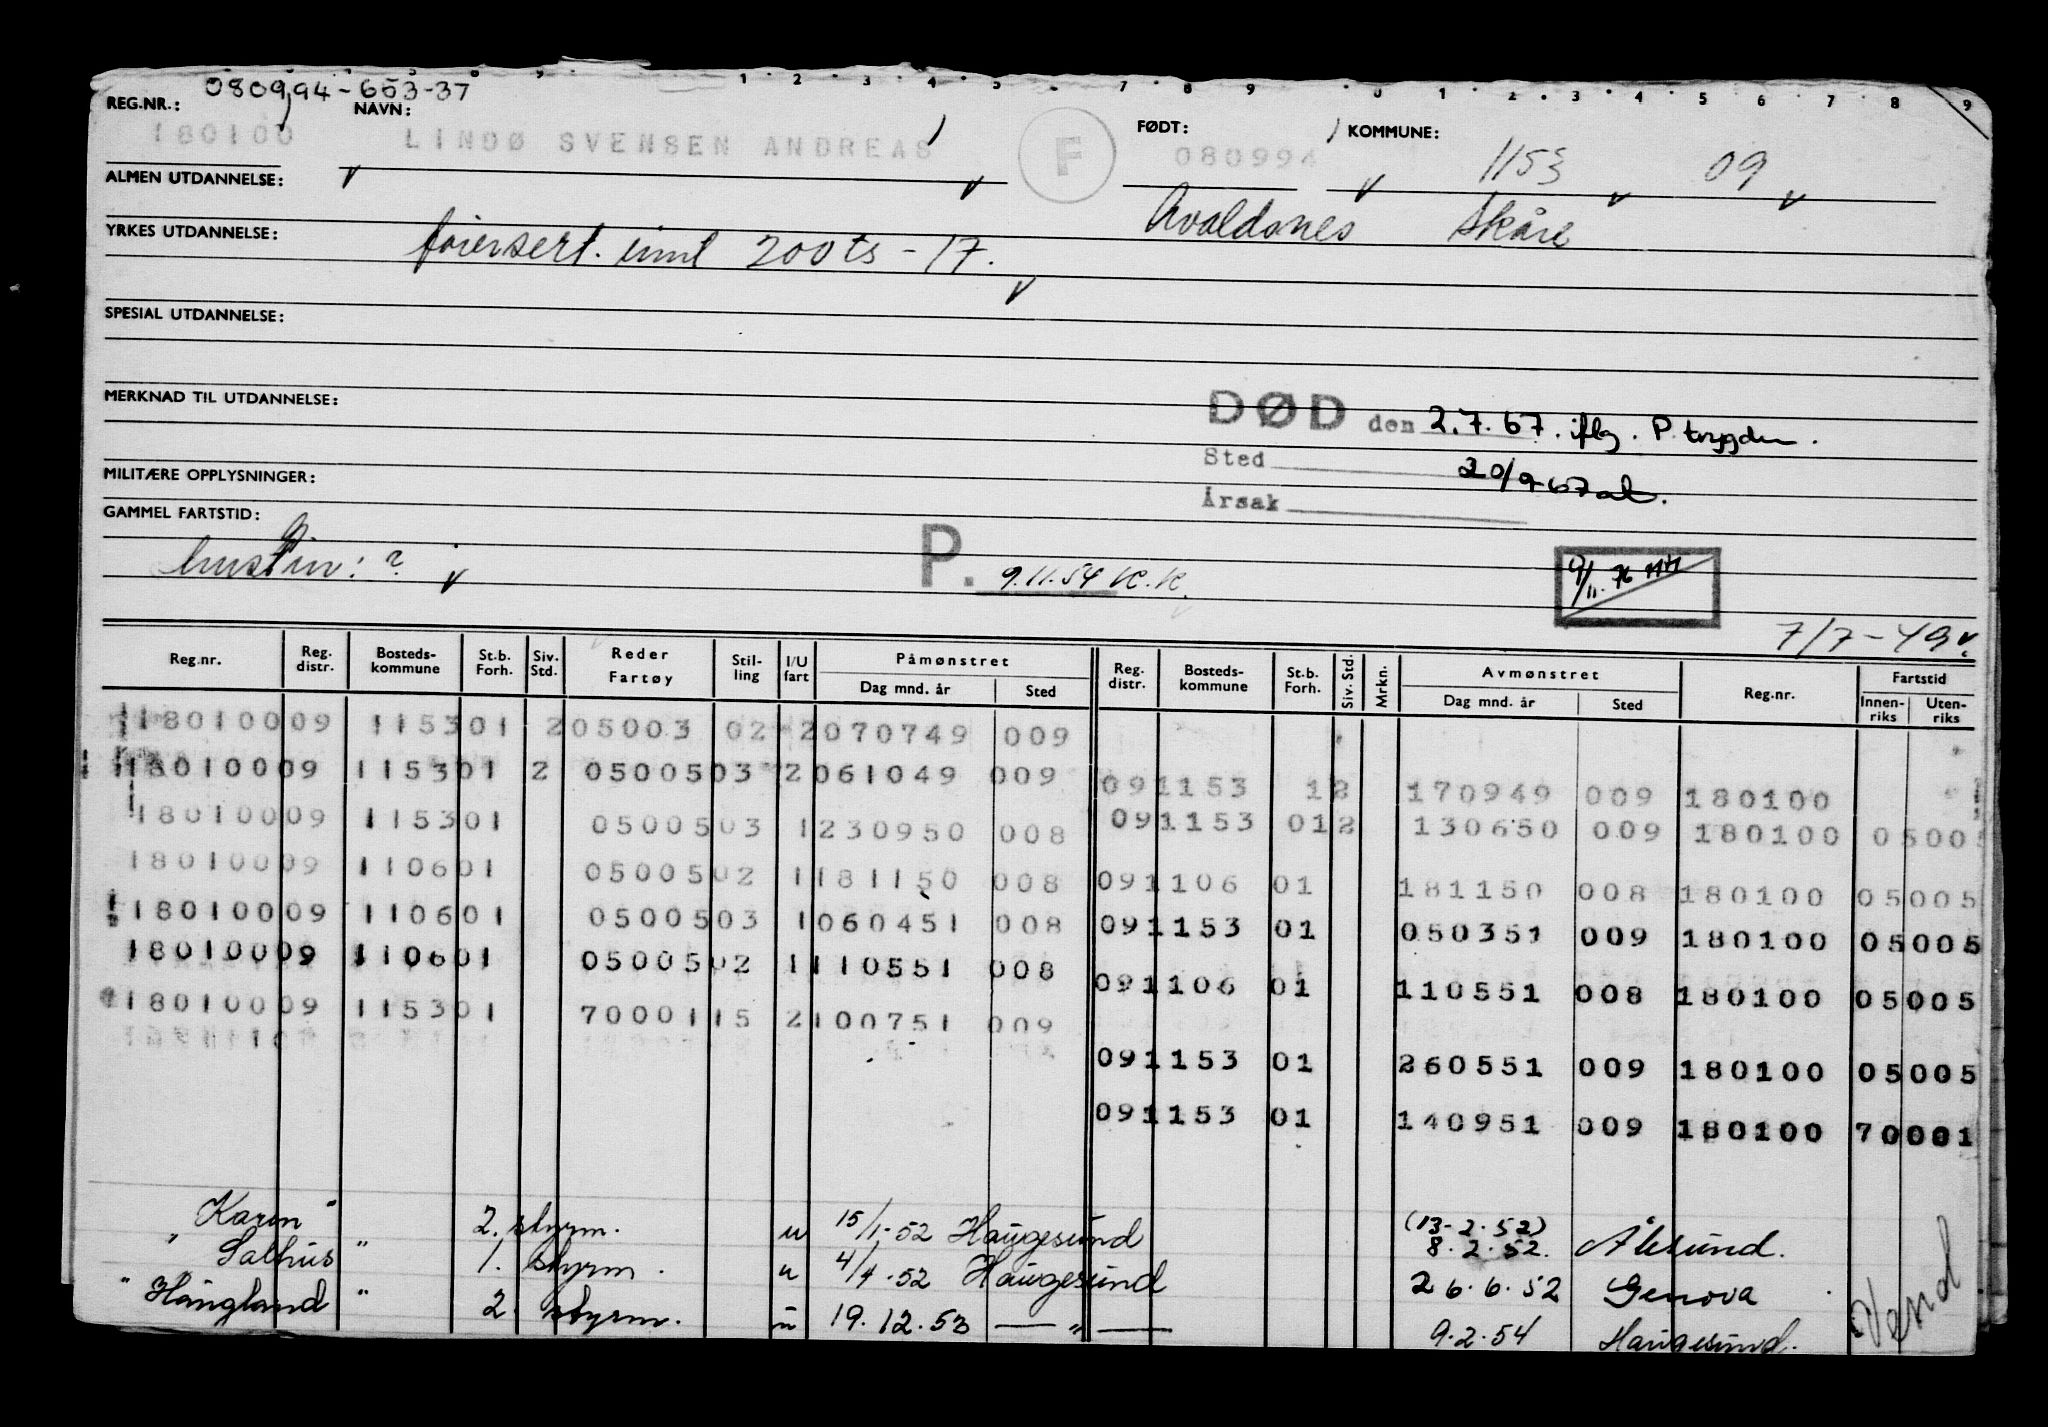 1 2 3 4 5 7 8 9 0 1 2 3 4 5 6 7 8 9
080994-653-37
REG.NR.: NAVN: FØDT: KOMMUNE:
180100 LINDØ SVENSEN ANDREAS F 080994 1153 09
ALMEN UTDANNELSE:
Avaldsnes Skåre
YRKES UTDANNELSE:
200 ts - 17.
SPESIAL UTDANNELSE:
MERKNAD TIL UTDANNELSE:
DØD den 2.7.67. iflg. P.trygden.
Sted
20/9-67
MILITÆRE OPPLYSNINGER:
Årsak
GAMMEL FARTSTID:
: ?
P. 9.11.54 K.K.
9/11. 76
7/7-49
Reg.nr. Reg. distr. Bosteds-kommune St.b. Forh. Siv. Std. Reder Fartøy Stil-ling I/U fart Påmønstret Dag mnd. år Sted Reg. distr. Bosteds-kommune St.b. Forh. Siv. Std. Mrkn. Avmønstret Dag mnd. år Sted Reg.nr. Fartstid Innen-riks Uten-riks
180100 09 1153 01 2 05003 02 2 070749 009
180100 09 1153 01 2 05005 03 2 061049 009
09 1153 1 2 170949 009 180100
180100 09 1153 01 05005 03 1 230950 008
09 1153 01 2 130650 009 180100 05005
180100 09 1106 01 05005 02 1 181150 008
09 1106 01 181150 008 180100 05005
180100 09 1106 01 05005 03 1 060451 008
09 1153 01 050351 009 180100 05005
180100 09 1106 01 05005 02 1 110551 008
09 1106 01 110551 008 180100 05005
180100 09 1153 01 70001 15 2 100751 009
09 1153 01 260551 009 180100 05005
09 1153 01 140951 009 180100 70001
Karin " 2. styrm. u 15/1-52 Haugesund (13-2.52) 8.2.52. Ålesund.
" Salhus " 1. styrm. u 4/4.52 Haugesund 26.6.52 Genova
" Haugland " 2. styrm. u 19.12.53 — " — 9.2.54 Haugesund.
Vend